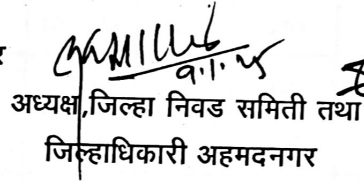 9.1.25
अध्यक्ष,जिल्हा निवड समिती तथा
जिल्हाधिकारी अहमदनगर